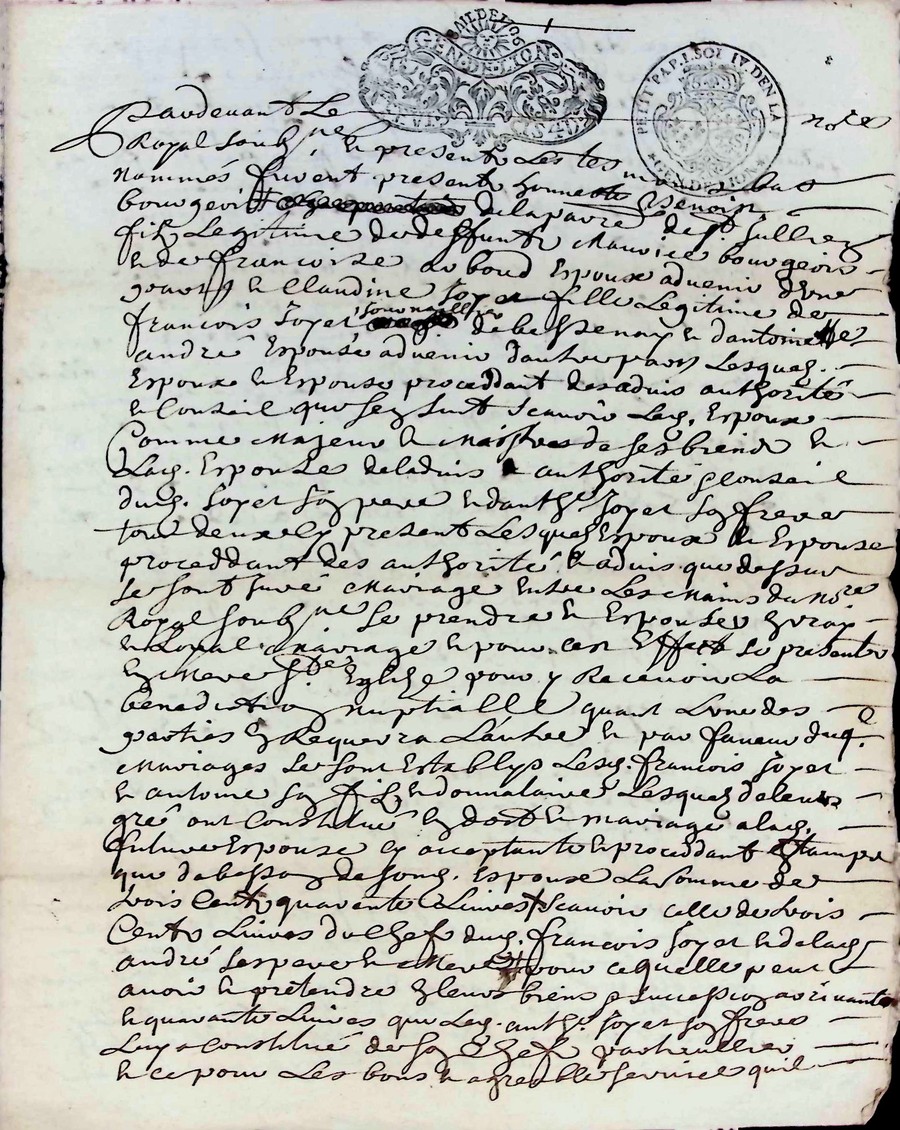 GEN·DE·LION
PETIT PAP. 1. SOL IV DEN LA
GEN DE LION
Pardevant Le no.re
Royal soubs.ne, En presents Les tes bas
nommés furent presents honneste Benoist
bourgeois de la parre de st. Jullien
fils Legitime de deffunt Maurice bourgeois
et de francoise du boud Espoux aduenir dune
part, Et Claudine Joyet fille Legitime de
francois Joyet de bessenay et dantoinette
andré Espouse aduenir dautre part Lesquels
Espoux et Espouse proceddant desaduis authorité
et Conseil que sen suit scauoir Led. Espoux
Comme Majeur et Maistre de ses biens et
Lad. Espouse de laduis et authorité et Conseil
dud. Joyet son pere et danth.e Joyet son frere
tous deux icy presents Lesquels Espoux et Espouse
proceddant des authorité et aduis que dessus
se sont Juré Mariage Entre Les Mains du No.re
Royal soubs.ne se prendre et Espouser en vray
et Loyal Mariage et pour cet Effect se presenter
en n.re Mere S.te Eglise pour y Receuoir La
benediction nuptialle quant Lune des
parties en Requerra Lautre et par faueur dud.
Mariage se sont Establys Lesd. francois Joyet
et antoine son fils et donnataire Lesquels de leur
gré ont Constitué en dost et mariage a lad.
future Espouse icy acceptante et proceddant
que dessus de sond. Espoux La somme de
trois Cents quarente Liures scauoir celle de trois
Cents Liures du Chef dud. francois Joyet et de lad.
andré ses pere et Mere pour ce quelle peut
auoir et pretendre en leurs biens et succession
et quarante Liures que Led. anth.e Joyet son frere
Luy a Constitué de son Chef particullier
et ce pour Les bons et agreables seruices quil